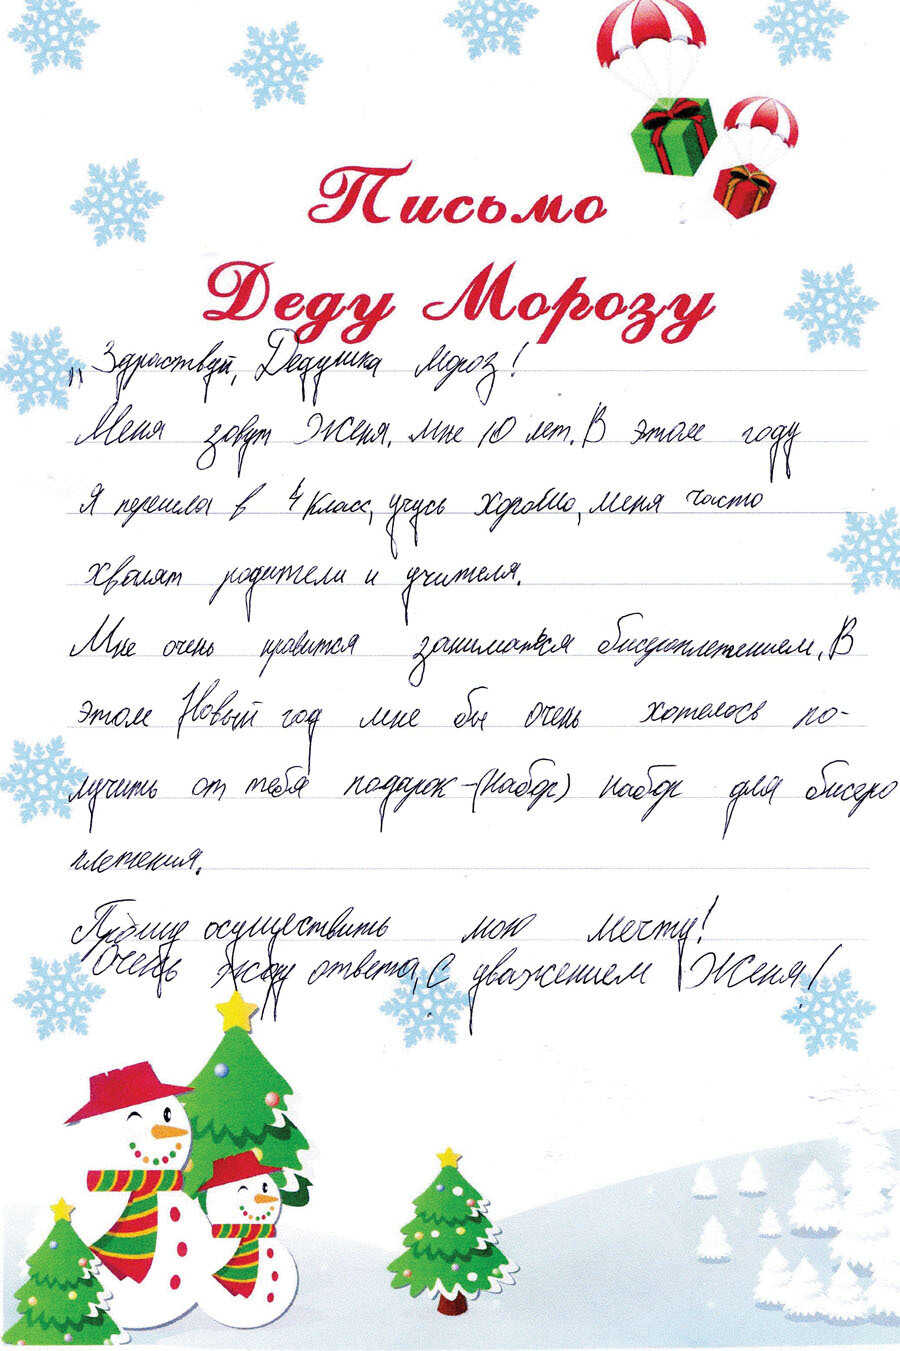 Письмо
Деду Морозу
„ Здраствуй, Дедушка Мороз!
Меня зовут Женя, мне 10 лет. В этом году
я перешла в 4 класс, учусь хорошо, меня часто
хвалят родители и учителя.
Мне очень нравится заниматься бисероплетением. В
этом Новый год мне бы очень хотелось по-
лучить от тебя подарок -(набор) набор для бисеро
плетения.
Прошу осуществить мою мечту!
Очень жду ответа, с уважением Женя!